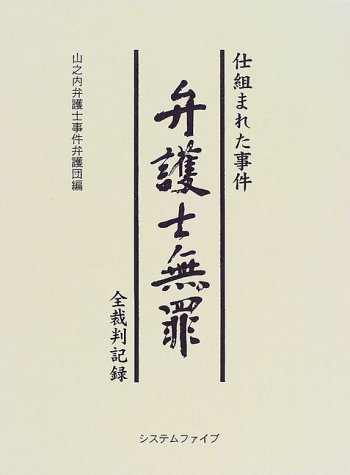 仕組まれた事件
弁護士無罪
全裁判記録
山之内弁護士事件弁護団編
システムファイブ